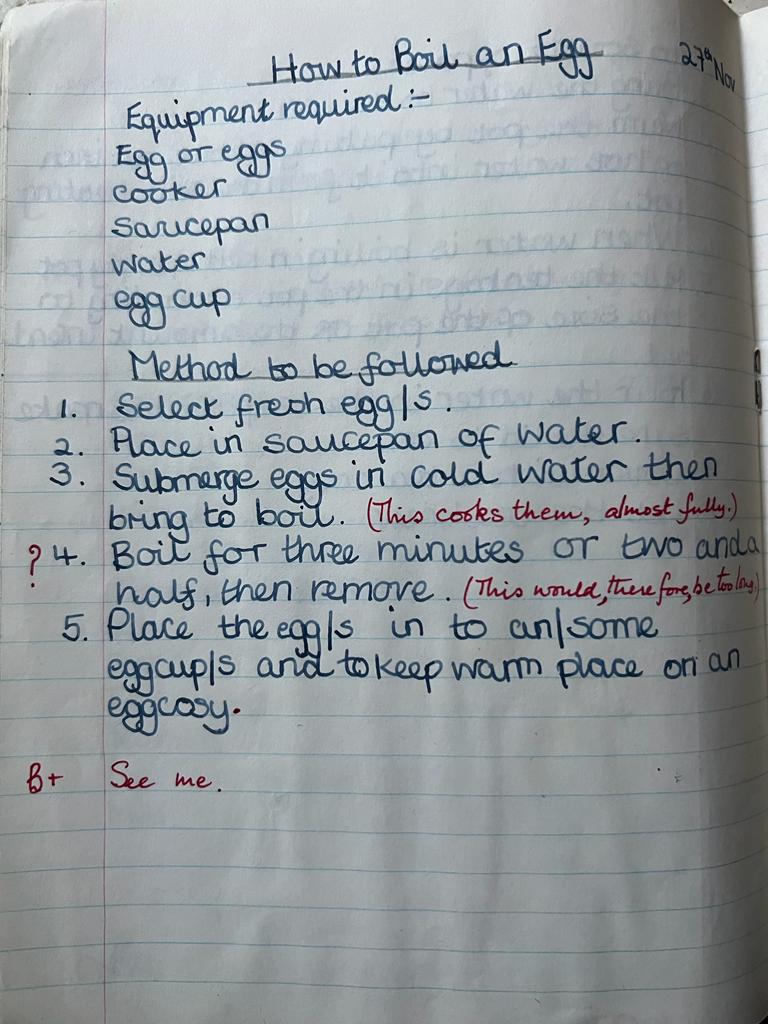 How to Boil an Egg 27th Nov
Equipment required:-
Egg or eggs
cooker
saucepan
water
egg cup
Method to be followed
1. Select fresh egg/s.
2. Place in saucepan of water.
3. Submerge eggs in cold water then
bring to boil. (This cooks them, almost fully.)
? 4. Boil for three minutes or two and a
half, then remove. (This would, therefore, be too long.)
5. Place the egg/s in to an/some
eggcup/s and to keep warm place on an
eggcosy.
B+ See me.